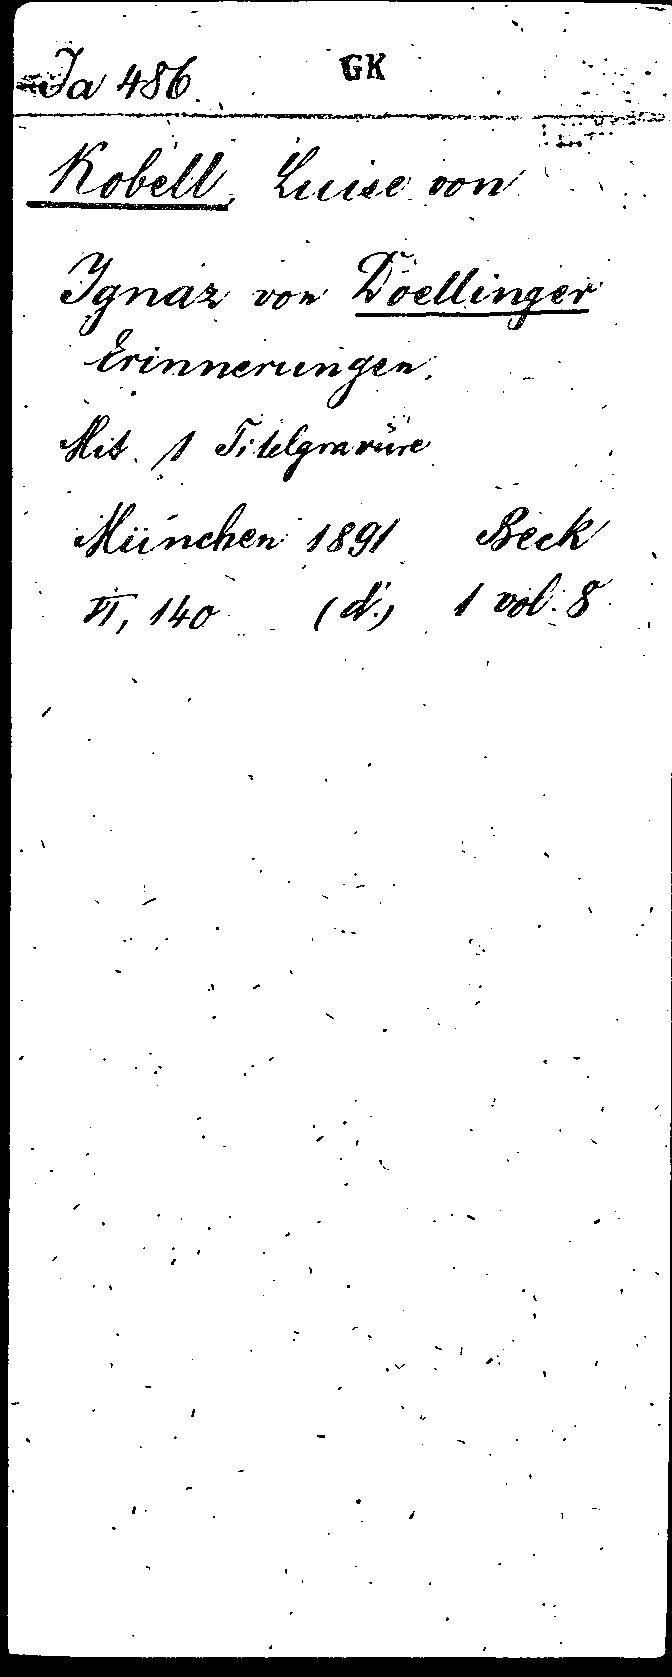 Ja 486 GK
Kobell, Luise von
Ignaz von Doellinger
Erinnerungen.
Mit 1 Titelgravüre
München 1891 Beck
VI, 140 (d.) 1 vol. 8